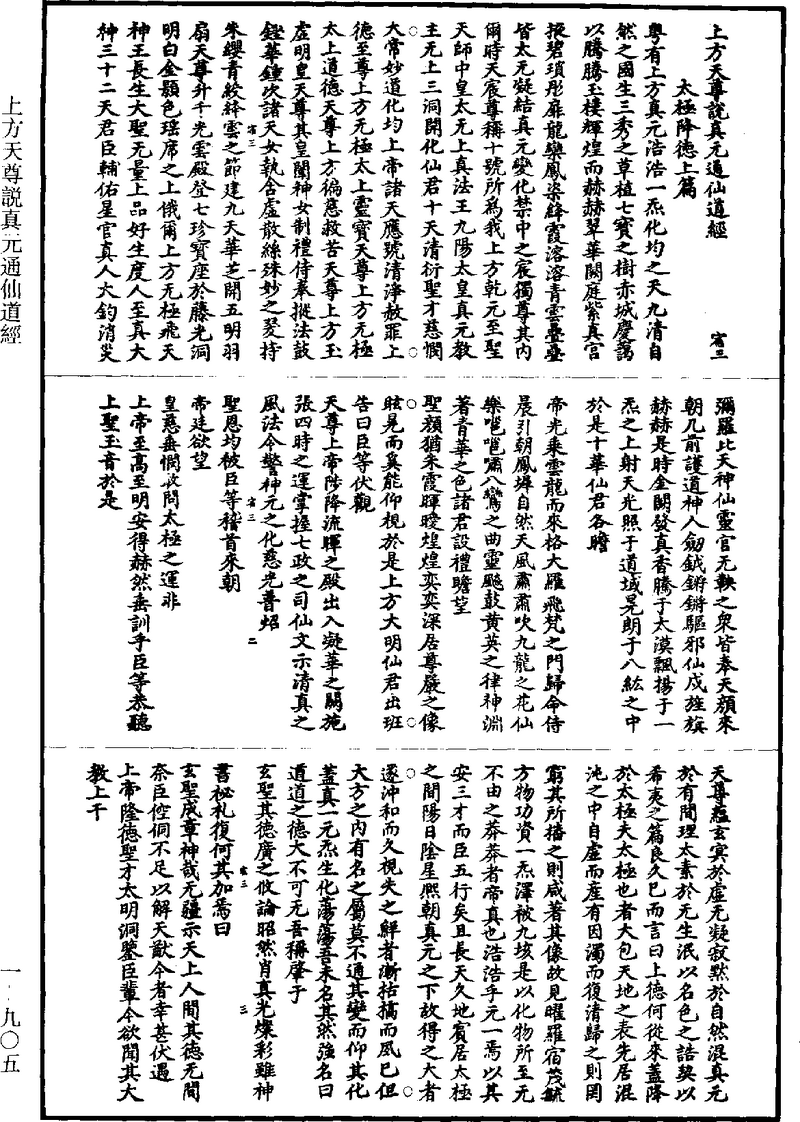 上方天尊說真元通仙道經
宿三
太極降德上篇
粵有上方真元浩浩一炁化均之天九清自
然之國生三秀之草植七寶之樹赤城慶藹
以騰騰玉樓輝煌而赫赫翠華闕庭紫真宮
掖碧瑣彤扉龍欒鳳楶絳霞溶溶青雲疊疊
皆太元凝結真元變化禁中之宸獨尊其內
爾時天宸尊稱十號所為我上方乾元至聖
天師中皇太无上真法王九陽太皇真元教
主无上三洞開化仙君十天清衍聖才慈憫
大常妙道化均上帝諸天應號清淨赦罪上
德至尊上方无極太上靈寶天尊上方无極
太上道德天尊上方徧慈救苦天尊上方玉
虛明皇天尊其皇闈神女制禮侍奉摐法鼓
鏗華鍾次諸天女執含虛散絲殊妙之裝持
宿三
一
朱纓青紋絳雲之節建九天華芝開五明羽
扇天尊升千光雲殿登七珍寶座於藤光洞
明白金顥色瑶席之上俄爾上方无極飛天
神王長生大聖无量上品好生度人至真大
神三十二天君臣輔佑星官真人大鈞消災
彌羅比天神仙靈官无鞅之衆皆奉天顏來
朝几前護道神人劒鉞鏘鏘驅邪仙戍旌旗
赫赫是時金闕發真香騰于太漠飄揚于一
炁之上射天光照于道域光朗于八紘之中
於是十華仙君各瞻
帝光乘雲龍而來格大羅飛梵之門歸命侍
晨引朝鳳墀自然天風肅肅吹九龍之花仙
樂嗈嗈嘯八鸞之曲靈飇鼓黃英之律神淵
著青華之色諸君設禮瞻望
聖顏猶朱霞暉曖煌煌奕奕深居尊嚴之像
眩晃而奚能仰視於是上方大明仙君出班
告曰臣等伏觀
天尊上帝陟降流暉之殿出入凝華之闕施
張四時之運掌握七政之司仙文示清真之
風法令警神元之化慈光普炤
宿三
二
聖恩均被臣等稽首來朝
帝廷欲望
皇慈垂憫敢問太極之運非
上帝至高至明安得赫然垂訓乎臣等恭聽
上聖玉音於是
天尊蘊玄㝠於虛无凝寂默於自然混真元
於有間理太素於无生泯以名色之誥契以
希夷之篇良久巳而言曰上德何從來蓋降
於太極夫太極也者大包天地之表先居混
沌之中自虛而産有因濁而復清歸之則罔
窮其所播之則咸著其像故見曜羅宿茂毓
方物功資一炁澤被九垓是以化物所至元
不由之莽莽者帝真也浩浩乎元一焉以其
安三才而臣五行矣且長天久地賓居太極
之間陽日陰星熈朝真元之下故得之大者
遂沖和而久視失之鮮者漸枯槁而夙巳但
大方之內有名之屬莫不通其變而仰其化
蓋真一元炁生化蕩蕩吾未名其然強名曰
道道之德大不可无吾稱肇于
玄聖其德廣之攸論昭然肖真光燦彩雖神
宿三
三
書祕札復何其加焉曰
玄聖成章神哉无疆示天上人間其德无間
奈臣倥侗不足以解天猷今者幸甚伏遇
上帝隆德聖才太明洞鑒臣輩今欲聞其大
教上干
上方天尊説真元通仙道經
一—九〇五